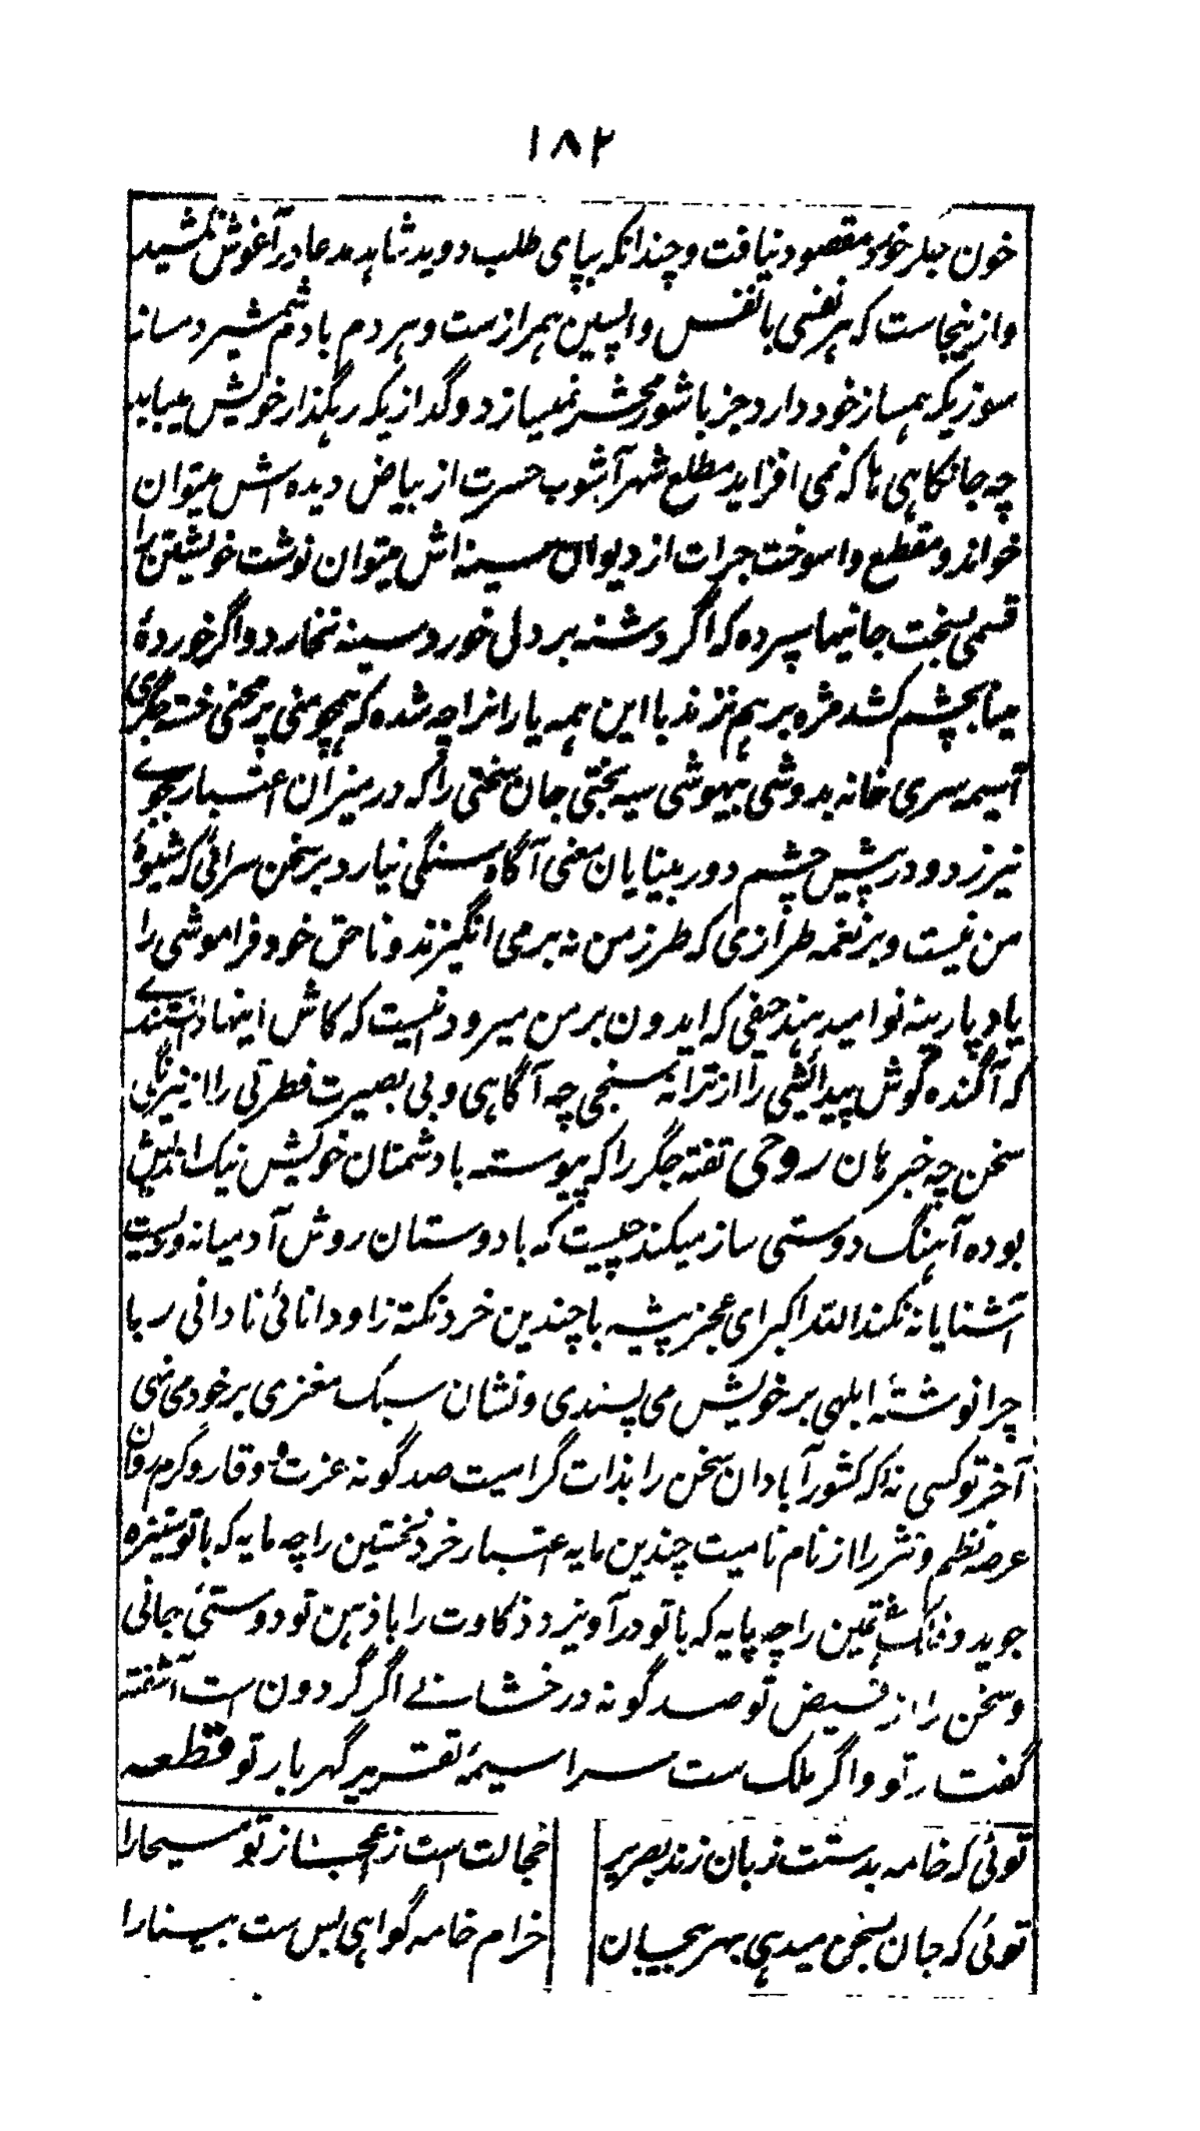 ۱۸۲
خون جگر خورد و مقصود نیافت و چندانکه بپای طلب دوید شاہد مدعا در آغوش نکشید
و ازینجاست که ہر نفسی با نفس واپسین ہمرازست و ہر دم با دم شمشیر دمساز
سوزیکه ہمساز خود دارد جز با شور محشر نمیسازد و گدازیکه رہگذار خویش مییابد
چه جانکاہی ہا که نمی افزاید مطلع شہر آشوب حسرت از بیاض دیده اش میتوان
خواند و مقطع واسوخت جرات از دیوان سینه اش میتوان نوشت خویشتن را
قسمی بسخت جانیہا سپرده که اگر دشنه بر دل خورد سینه نخارد و اگر خوردهٔ
مینا بچشم کشد مژه برہم نزند با این ہمه یارانرا چه شده که ہمچو منی پر محنی خسته جگری
آسیمه سری خانه بدوشی بیہوشی سیه بختی جان سختی را که در میزان اعتبار بجوے
نیرزد و در پیش چشم دوربینایان معنی آگاه سنگی نیارد بر سخن سرائی که شیوهٔ
من نیست و بر نغمه طرازی که طرز من نه برمی انگیزند و ناحق خود فراموشی را
یاد پارینه نوا میدہند حیفی که ایدون بر من میرود انیست که کاش اینہا دانستندے
که آگنده گوش پیدائشی را از ترانه سنجی چه آگاہی و بی بصیرت فطرتی را از نیرنگی
سخن چه خبر ہان روحی تفته جگر را که پیوسته با دشمنان خویش نیک اندیش
بوده آہنگ دوستی ساز میکند چیست که با دوستان روش آدمیانه و
آشنایانه نکند اللہ اکبر ای عجز پیشه با چندین خرد نکته زا و دانائی نادانی ربا
چرا نوشتهٔ ابلہی بر خویش می پسندی و نشان سبک مغزی بر خود می نہی
آخر تو کسی نه که کشور آبادان سخن را بذات گرامیت صد گونه عزت و وقار و گرم روان
عرصه نظم و نثر را از نام نامیت چندین مایه اعتبار خرد نخستین را چه مایه که با تو ستیزه
جوید و فلک ہشتمین را چه پایه که با تو در آویزد ذکاوت را با ذہن تو دوستیٔ جانی
و سخن را از فیض تو صد گونه درخشانے اگر گردون است آشفته
گفتار تو و اگر ملک ست سراسیمهٔ تقریر گہربار تو قطعه
توئی که خامه بدستت زبان زند بصریر خجالت است ز اعجاز تو مسیحا را
توئی که جان بسخن میدہی بہر بیجان خرام خامه گواہی بس ست بینا را